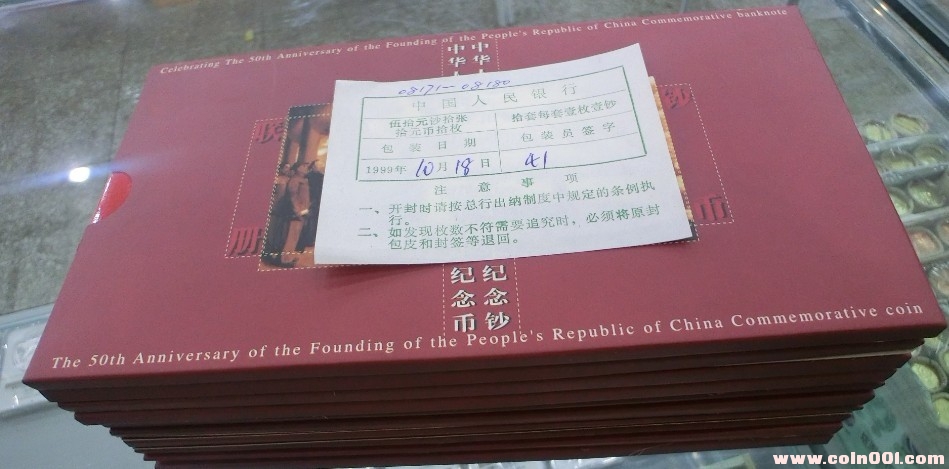 Celebrating The 50th Anniversary of the Founding of the People's Republic of China Commemorative banknote
中 中
华 华
08171—08180
中国人民银行
伍拾元涉拾张
拾元币拾枚
拾套每套壹枚壹钞
包装日期
包装员签字
1999年 10月 18日
41
注意事项
一、开封时请按总行出纳制度中规定的条例执
行。
二、如发现枚数不符需要追究时，必须将原封
包皮和封签等退回。
钞
币
册
纪 纪
念 念
币 钞
The 50th Anniversary of the Founding of the People's Republic of China Commemorative coin
www.coln001.com